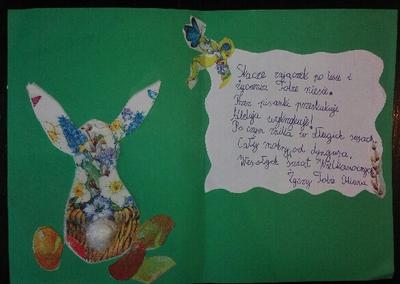 Skacze zajączek po lesie i
życzenia Tobie niesie.
Przez pisanki przeskakuje
Alleluja wykrzykuje!
Po czym znika w długich susach.
Cały mokry od dyngusa.
Wesołych Świąt Wielkanocnych
Życzy Tobie Oliwia